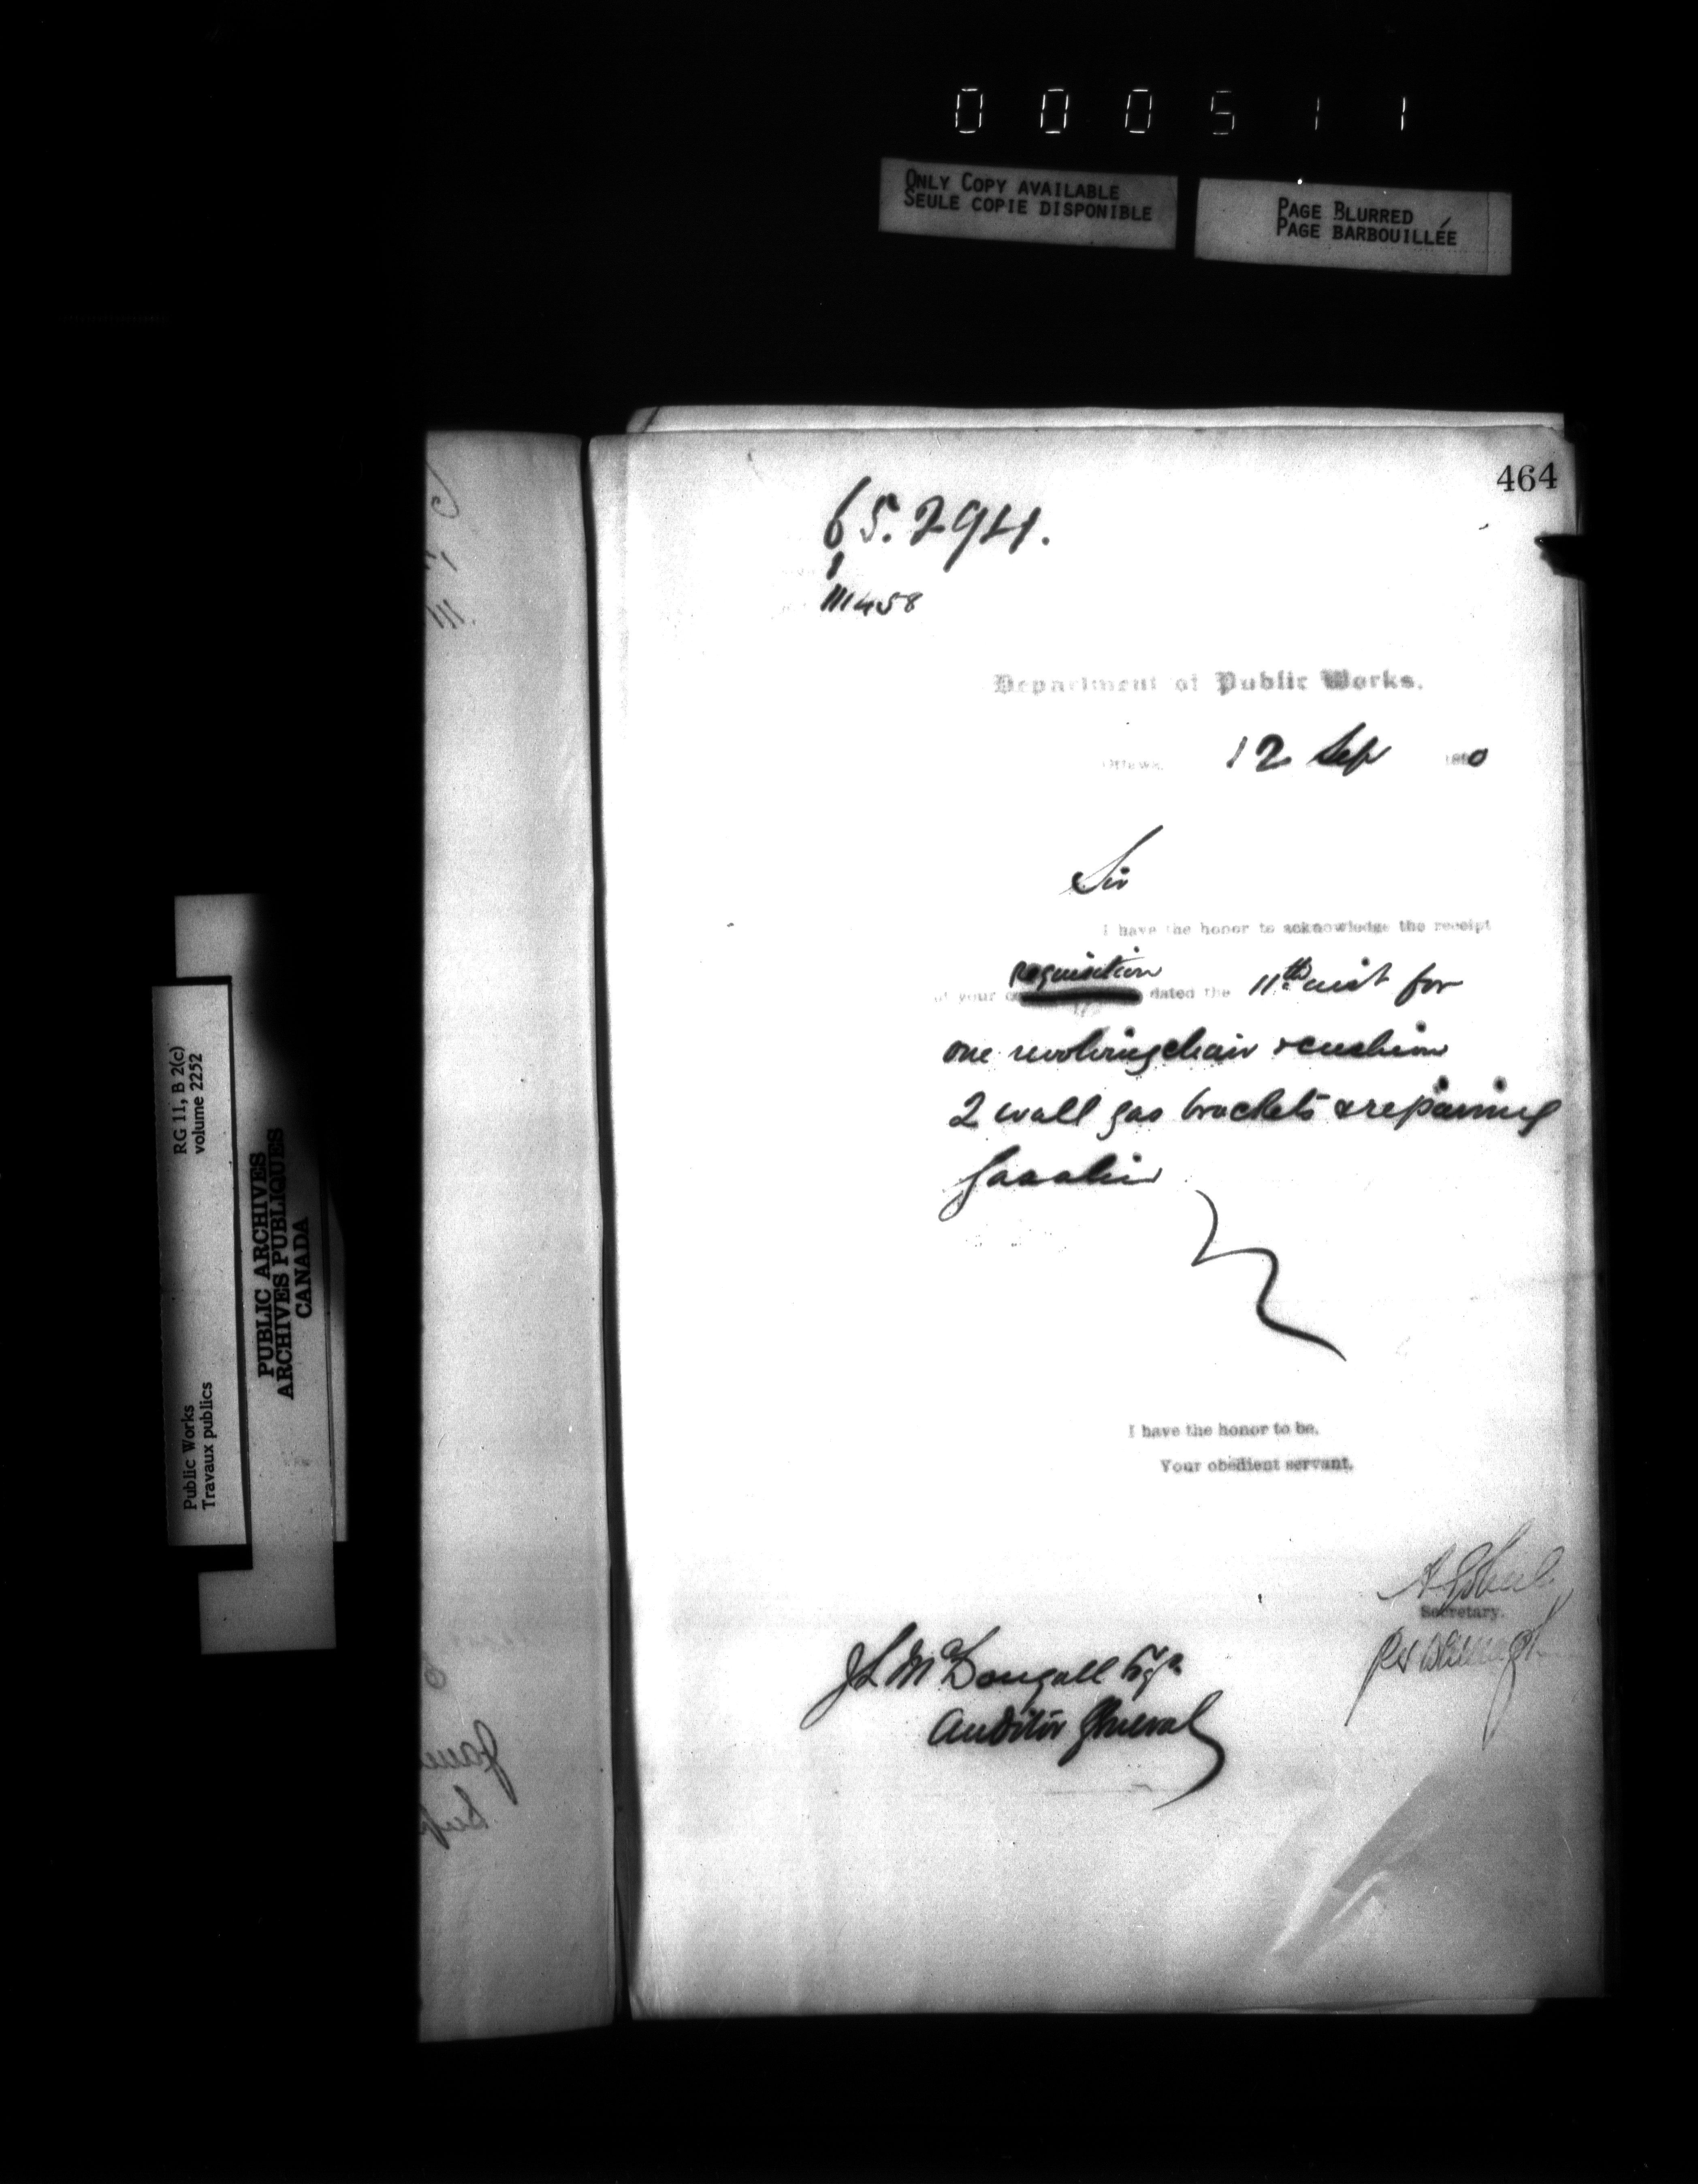 000511
ONLY COPY AVAILABLE
SEULE COPIE DISPONIBLE
PAGE BLURRED
PAGE BARBOUILLÉE
464
65.294.
111458
Department of Public Works.
Ottawa, 12 Sep 1890
Sir
I have the honor to acknowledge the receipt
requisition
of your dated the 11th inst for
one revolving chair & cushion
2 wall gas brackets & repairing
I have the honor to be,
Your obedient servant,
A Gobeil
Secretary.
per
J L McDougall Esqr
Auditor General
RG 11, B 2(c)
volume 2252
Public Works
Travaux publics
PUBLIC ARCHIVES
ARCHIVES PUBLIQUES
CANADA